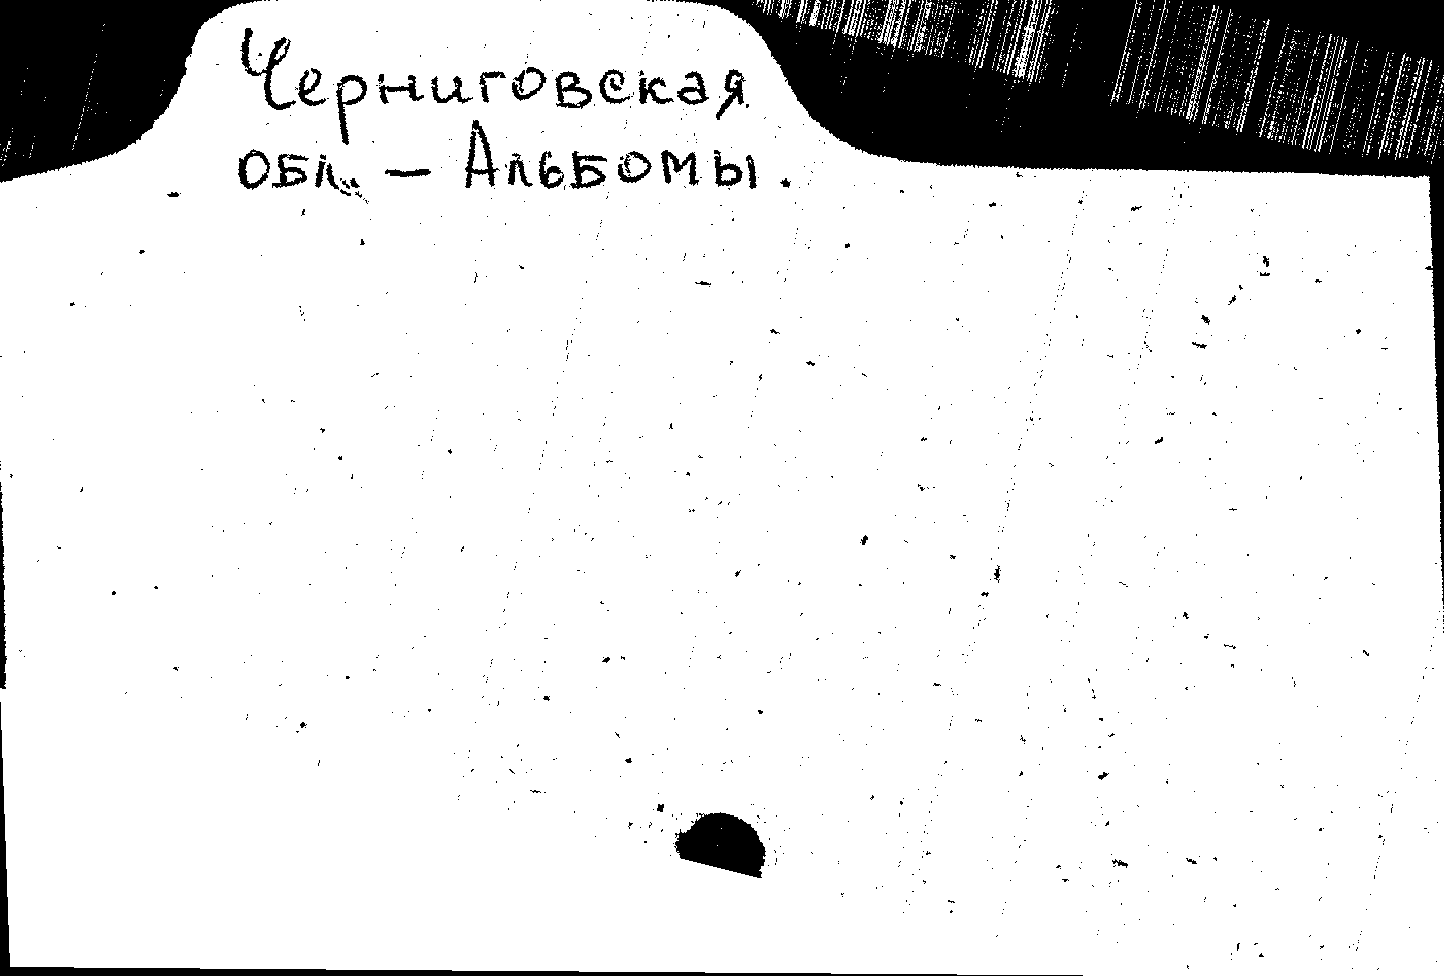 Черниговская
обл. — Альбомы.